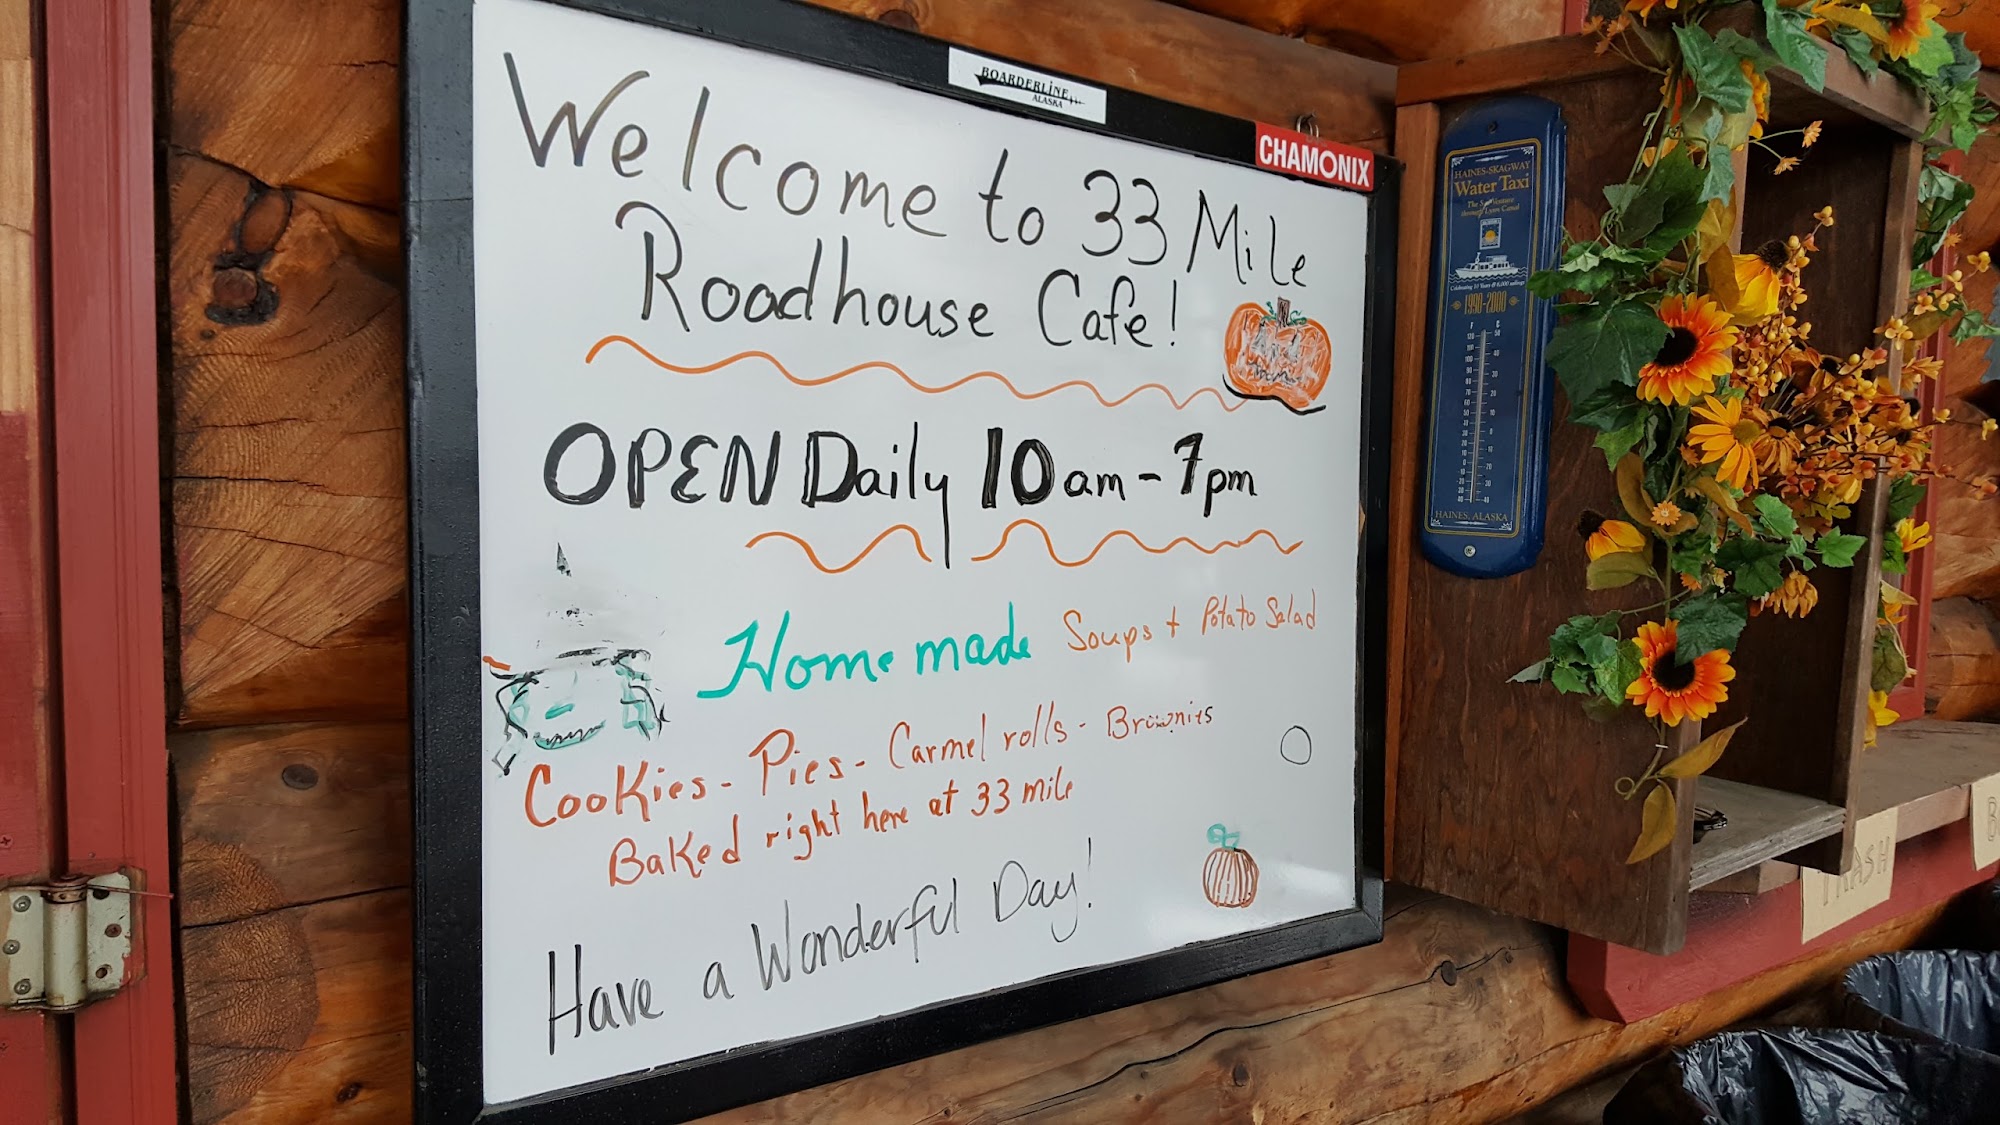 BOARDERLINE
ALASKA
CHAMONIX
Welcome to 33 Mile
Roadhouse Cafe!
OPEN Daily 10am - 7pm
Homemade Soups + Potato Salad
Cookies - Pies - Carmel rolls - Brownies
Baked right here at 33 mile
Have a Wonderful Day!
HAINES-SKAGWAY
Water Taxi
through Lynn Canal
1990-2000
F C
HAINES, ALASKA
TRASH